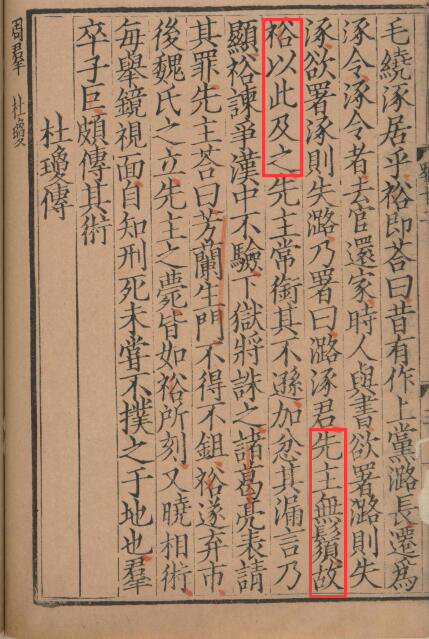 毛繞涿居乎裕即荅曰昔有作上黨潞長遷爲
涿令涿令者去官還家時人與書欲署潞則失
涿欲署涿則失潞乃署曰潞涿君先主無鬚故
裕以此及之先主常銜其不遜加忿其漏言乃
顯裕諫爭漢中不驗下獄將誅之諸葛亮表請
其罪先主荅曰芳蘭生門不得不鉏裕遂弃市
後魏氏之立先主之薨皆如裕所刻又曉相術
每舉鏡視面自知刑死未嘗不撲之于地也羣
卒子巨頗傳其術
杜瓊傳
周羣 杜瓊